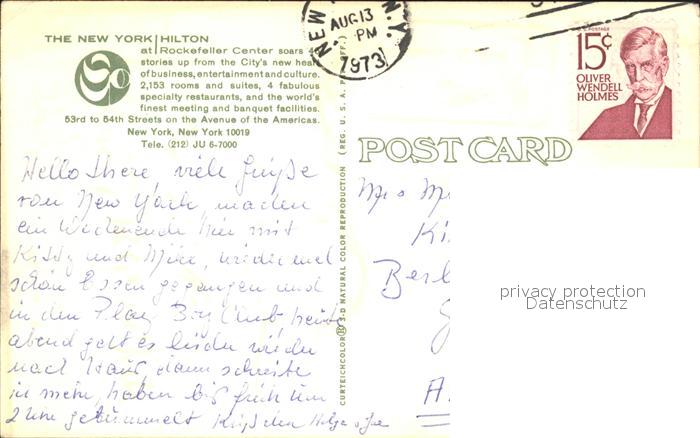 THE NEW YORK HILTON
at Rockefeller Center soars 4
stories up from the City's new heart
of business, entertainment and culture.
2,153 rooms and suites, 4 fabulous
specialty restaurants, and the world's
finest meeting and banquet facilities.
53rd to 54th Streets on the Avenue of the Americas.
New York, New York 10019
Tele. (212) JU 6-7000
Hello there, viele Grüße
von New York, machen
ein Wochenende hier mit
Kitty und Mike, wieder mal
schön Essen gegangen und
in den Play Boy Club, heute
abend geht es leider wieder
nach Haus, dann schreibe
ich mehr, haben bis früh um
2 Uhr gebummelt
CURTEICHCOLOR® 3-D NATURAL COLOR REPRODUCTION (REG. U. S. A. OFF.)
NEW N.Y.
AUG 13
PM
1973
POSTAGE
15¢
OLIVER
WENDELL
HOLMES
POST CARD
Mr + Mr
Ki
Berl
A.
privacy protection
Datenschutz